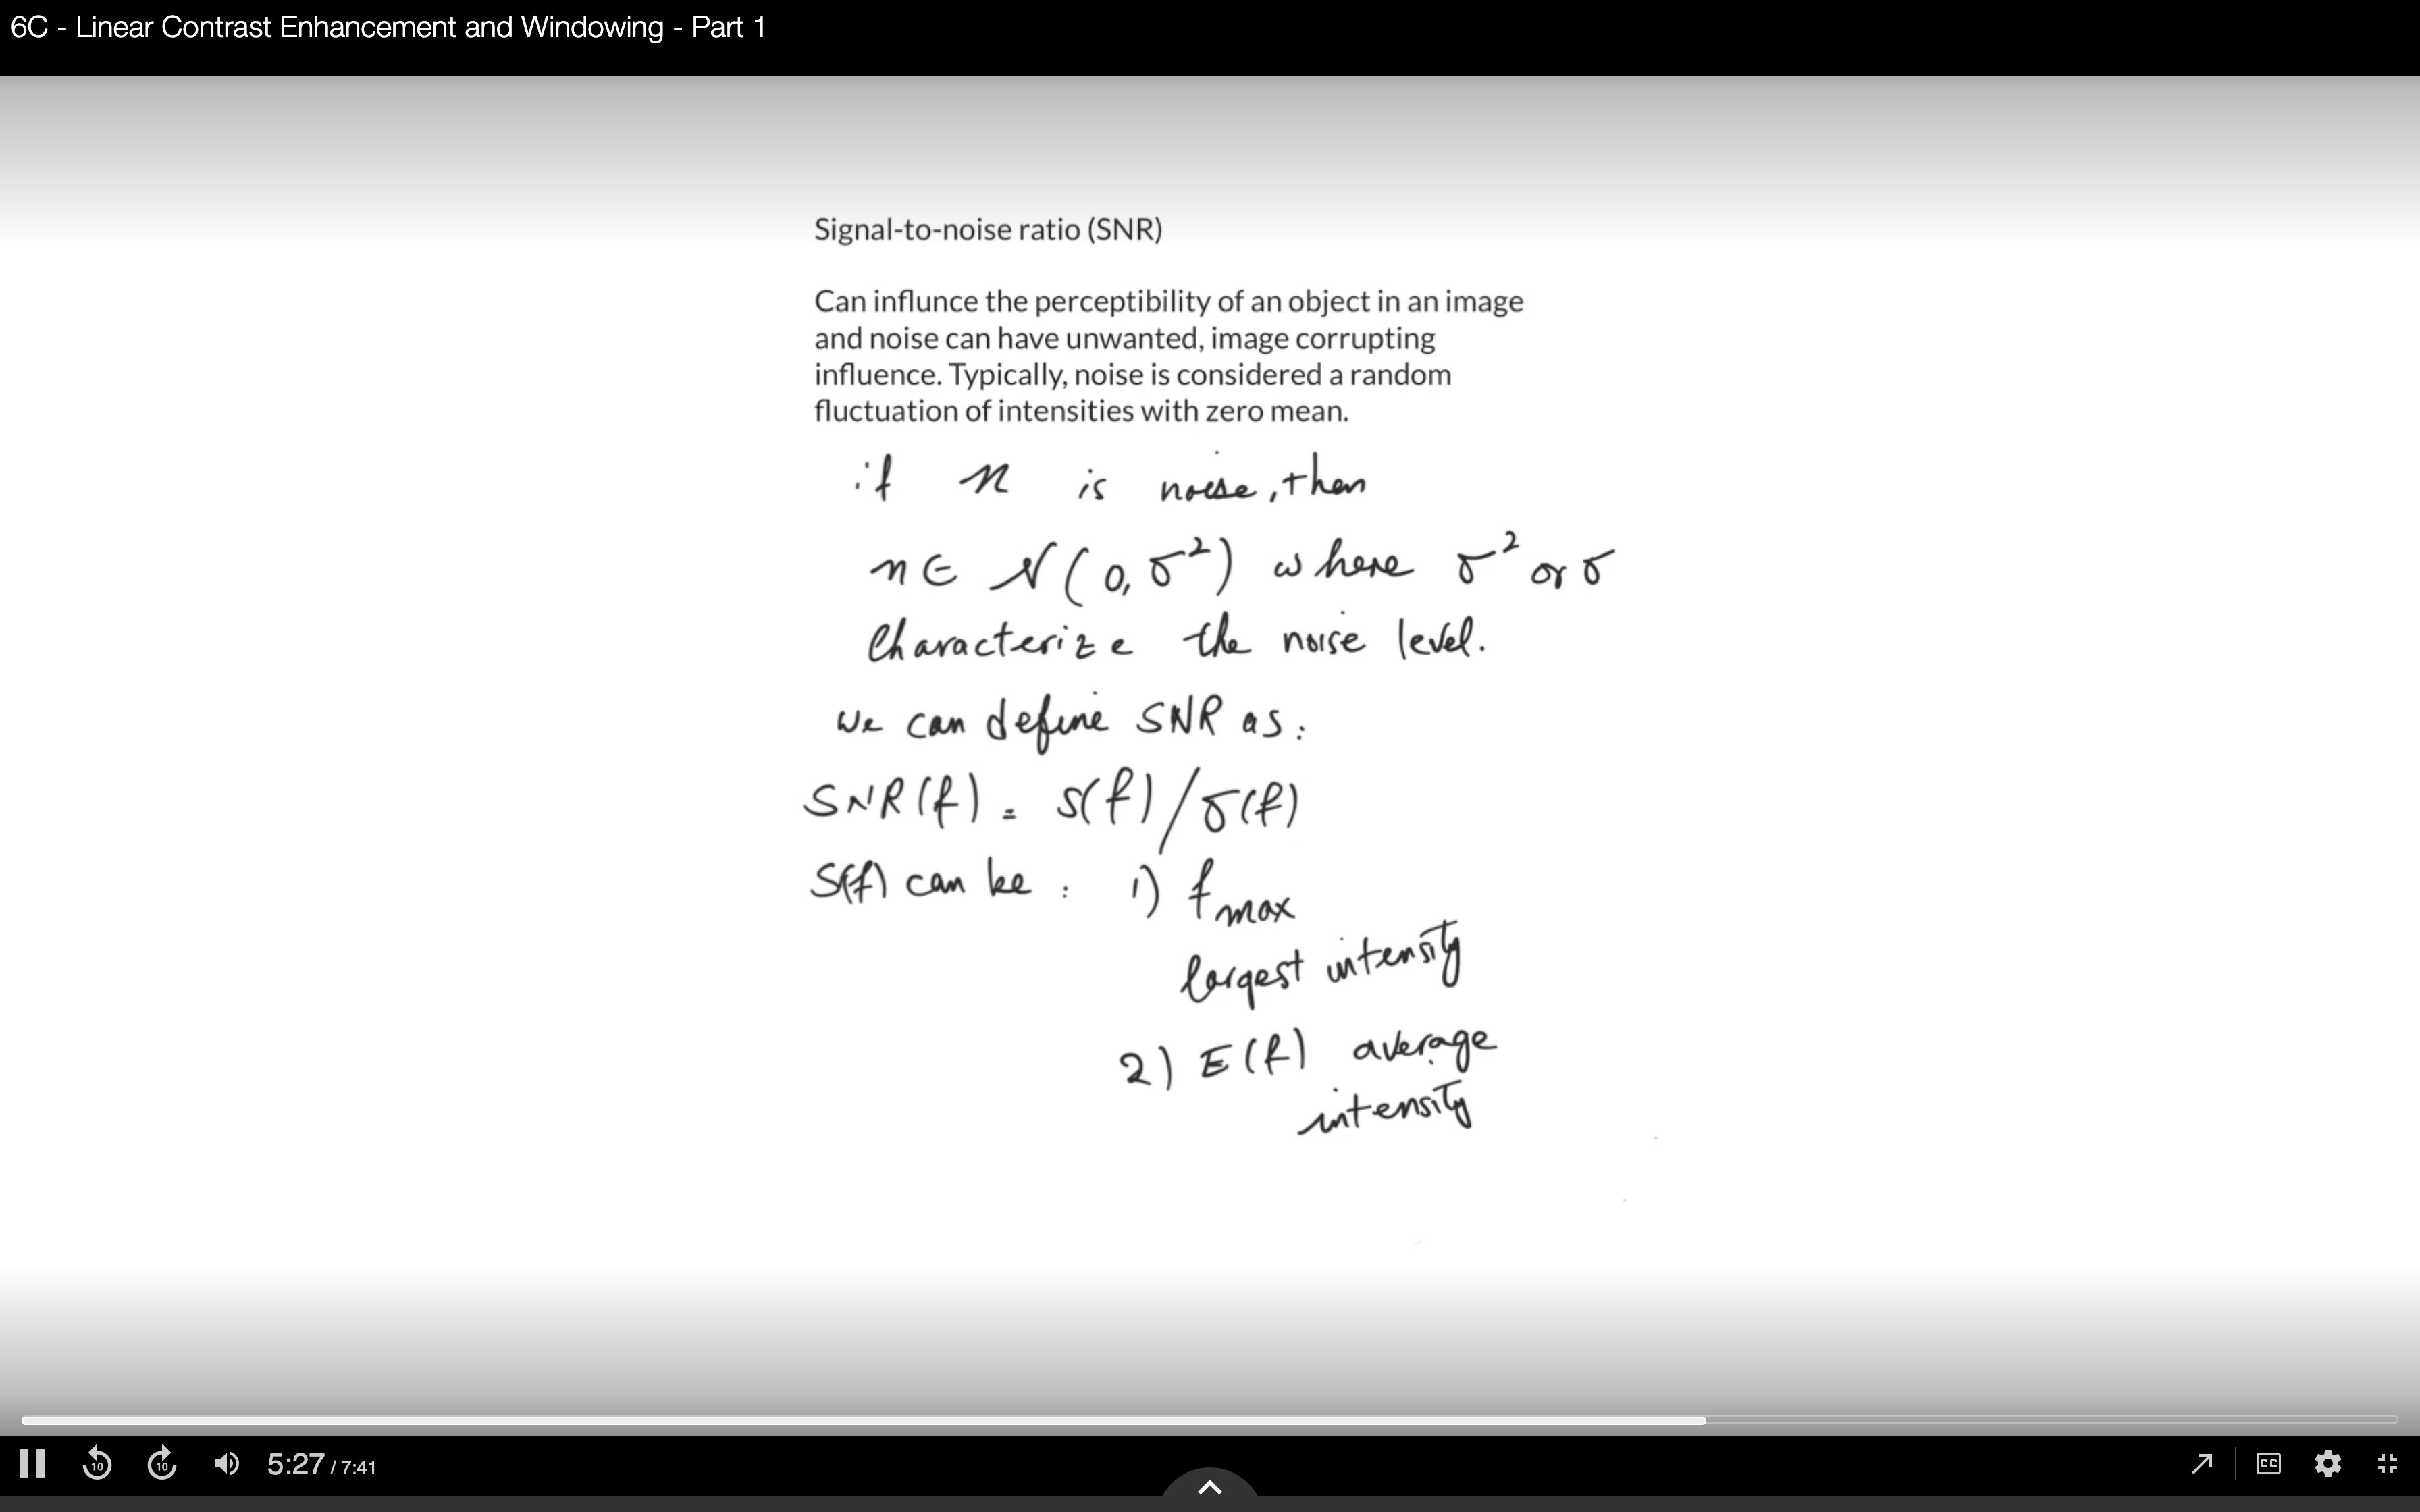 6C - Linear Contrast Enhancement and Windowing - Part 1
Signal-to-noise ratio (SNR)
Can influnce the perceptibility of an object in an image
and noise can have unwanted, image corrupting
influence. Typically, noise is considered a random
fluctuation of intensities with zero mean.
if n is noise, then
n ∈ N(0, σ²) where σ² or σ
Characterize the noise level.
we can define SNR as:
SNR(f) = S(f)/σ(f)
S(f) can be : 1) fmax
largest intensity
2) E(f) average
intensity
10 10 5:27 / 7:41 CC